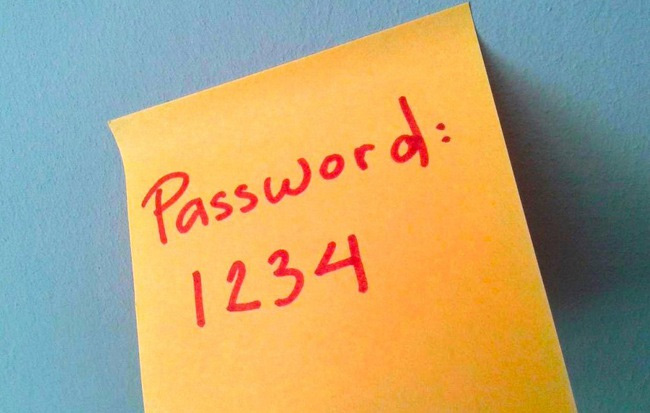 Password:
1234